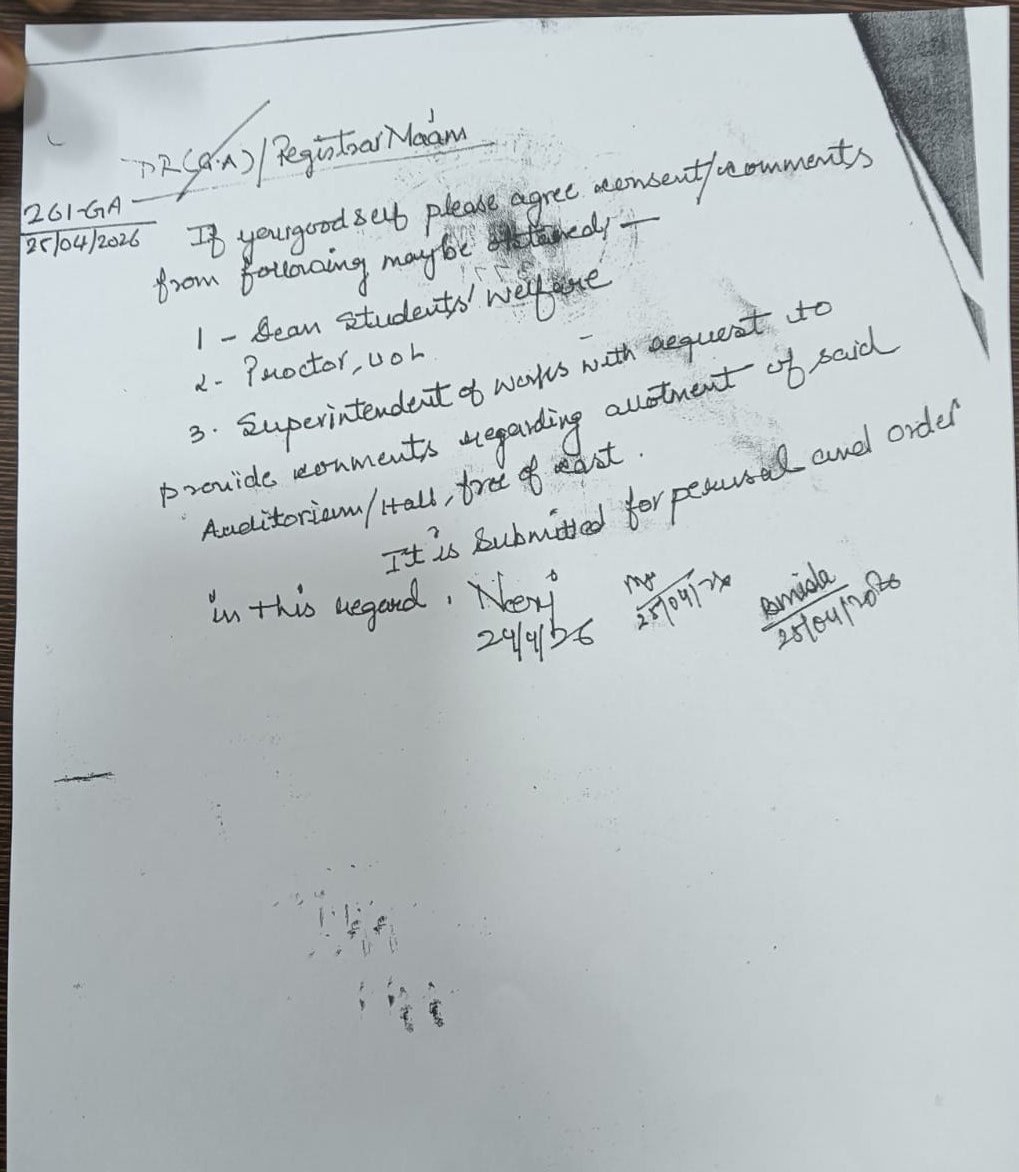 DR(G.A)/Registrar Maám
261-GA
25/04/2026
If yourgoodself please agree consent/comments
from following maybe obtained,—
1 - Dean Students' Welfare
2 - Proctor, UOL
3. Superintendent of works with request to
provide comments regarding allotment of said
Auditorium/Hall, free of cost.
It is Submitted for perusal and order
in this regard. Neeraj
24/4/26
25/04/26
25/04/2026